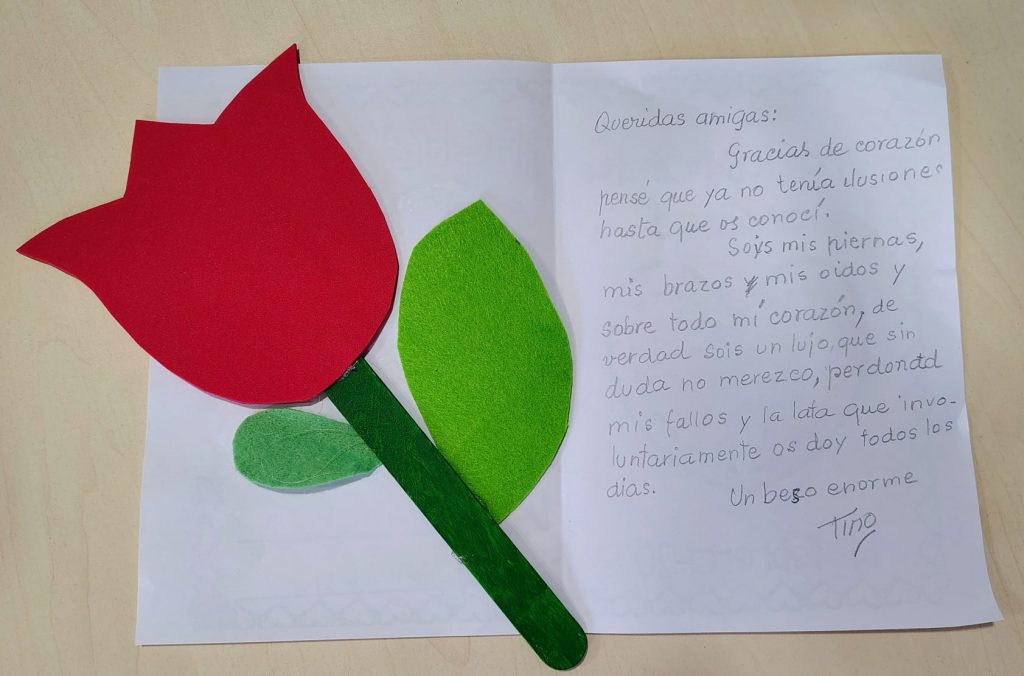 Queridas amigas:
Gracias de corazón
pensé que ya no tenía ilusiones
hasta que os conocí.
Soys mis piernas,
mis brazos y mis oidos y
sobre todo mí corazón, de
verdad sois un lujo, que sin
duda no merezco, perdonad
mis fallos y la lata que invo-
luntariamente os doy todos los
días.
Un beso enorme
Tino